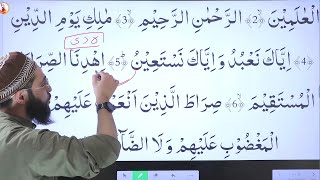 الْعٰلَمِيْنَ ﴿2﴾ الرَّحْمٰنِ الرَّحِيْمِ ﴿3﴾ مٰلِكِ يَوْمِ الدِّيْنِ
﴿4﴾ اِيَّاكَ نَعْبُدُ وَ اِيَّاكَ نَسْتَعِيْنُ ﴿5﴾ اِهْدِنَا الصِّرَاطَ
الْمُسْتَقِيْمَ ﴿6﴾ صِرَاطَ الَّذِيْنَ اَنْعَمْتَ عَلَيْهِمْ
الْمَغْضُوْبِ عَلَيْهِمْ وَلَا الضَّآ